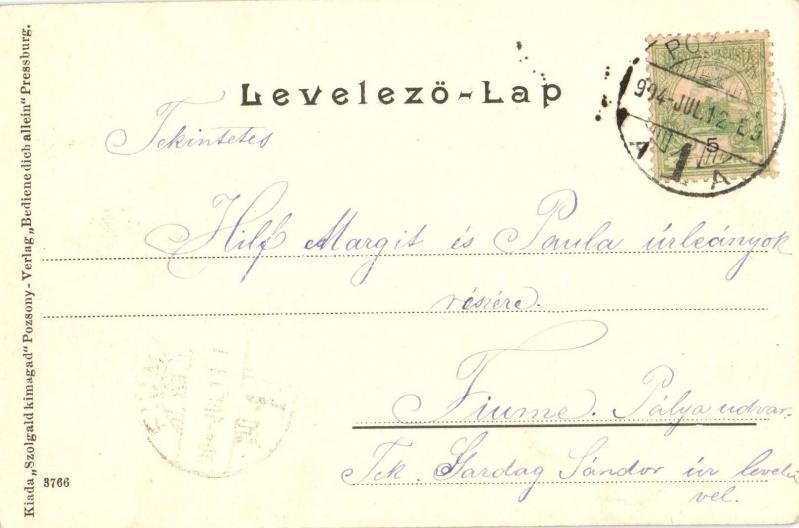 Levelező-Lap
Tekintetes
Hilf Margit és Paula úrleányok
részére.
Fiume. Pálya udvar.
Tek. Gardag Sándor úr levelé
vel.
Kiadja „Szolgald kimagad" Pozsony - Verlag „Bediene dich allein" Pressburg.
3766
904-JUL.12 E9
5
A